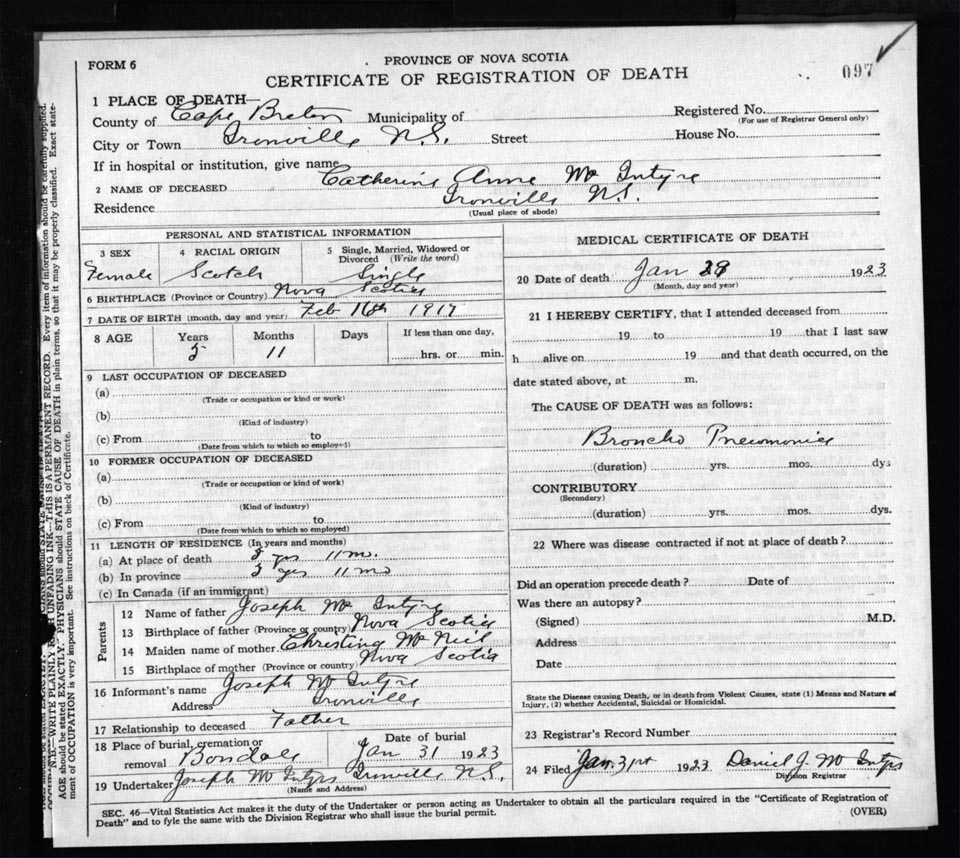 FORM 6
PROVINCE OF NOVA SCOTIA
CERTIFICATE OF REGISTRATION OF DEATH
097
1 PLACE OF DEATH—
County of Cape Breton Municipality of Registered No.
(For use of Registrar General only)
City or Town Ironville N.S. Street House No.
If in hospital or institution, give name
2 NAME OF DECEASED Catherine Anne Mc Intyre
Residence Ironville N.S.
(Usual place of abode)
PERSONAL AND STATISTICAL INFORMATION
3 SEX 4 RACIAL ORIGIN 5 Single, Married, Widowed or Divorced (Write the word)
Female Scotch Single
6 BIRTHPLACE (Province or Country) Nova Scotia
7 DATE OF BIRTH (month, day and year) Feb 16th 1917
8 AGE Years Months Days If less than one day,
5 11 hrs. or min.
9 LAST OCCUPATION OF DECEASED
(a)
(Trade or occupation or kind or work)
(b)
(Kind of industry)
(c) From to
(Date from which to which so employed)
10 FORMER OCCUPATION OF DECEASED
(a)
(Trade or occupation or kind of work)
(b)
(Kind of industry)
(c) From to
(Date from which to which so employed)
11 LENGTH OF RESIDENCE (In years and months)
(a) At place of death 5 yrs 11 mo.
(b) In province 5 yrs 11 mo
(c) In Canada (if an immigrant)
Parents
12 Name of father Joseph Mc Intyre
13 Birthplace of father (Province or country) Nova Scotia
14 Maiden name of mother. Christina Mc Neil
15 Birthplace of mother (Province or country) Nova Scotia
16 Informant's name Joseph Mc Intyre
Address Ironville
17 Relationship to deceased Father
18 Place of burial, cremation or removal Date of burial
Jan 31 1923
19 Undertaker Joseph Mc Intyre Ironville N.S.
(Name and Address)
MEDICAL CERTIFICATE OF DEATH
20 Date of death Jan 1923
(Month, day and year)
21 I HEREBY CERTIFY, that I attended deceased from
19 to 19 that I last saw
h alive on 19 and that death occurred, on the
date stated above, at m.
The CAUSE OF DEATH was as follows:
Broncho Pneumonia
(duration) yrs. mos. dys
CONTRIBUTORY
(Secondary)
(duration) yrs. mos. dys.
22 Where was disease contracted if not at place of death?
Did an operation precede death? Date of
Was there an autopsy?
(Signed) M.D.
Address
Date
State the Disease causing Death, or in death from Violent Causes, state (1) Means and Nature of
Injury, (2) whether Accidental, Suicidal or Homicidal.
23 Registrar's Record Number
24 Filed Jan. 31st 1923 Daniel J. Mc Intyre
Division Registrar
SEC. 46—Vital Statistics Act makes it the duty of the Undertaker or person acting as Undertaker to obtain all the particulars required in the "Certificate of Registration of
Death" and to fyle the same with the Division Registrar who shall issue the burial permit. (OVER)
WRITE PLAINLY UNFADING INK—THIS IS A PERMANENT RECORD. Every item of information should be carefully supplied.
AGE should be stated EXACTLY. PHYSICIANS should STATE CAUSE OF DEATH in plain terms, so that it may be properly classified. Exact state-
ment of OCCUPATION is very important. See instructions on back of Certificate.